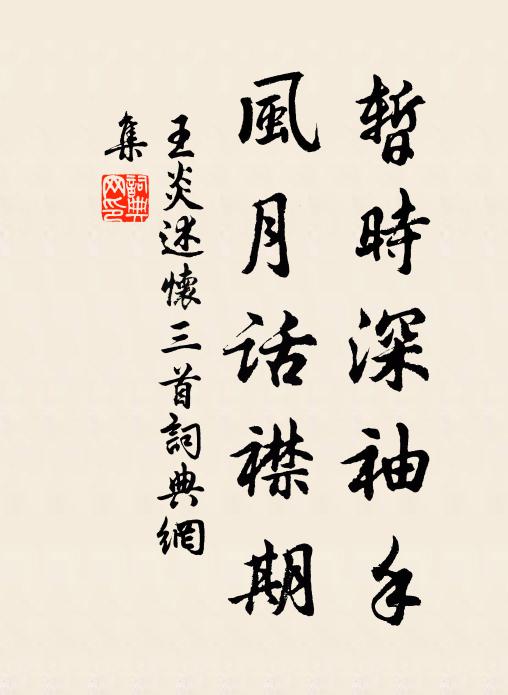 暫時深袖手
風月話襟期
王炎述懷三首詞典網
集
詞典網印